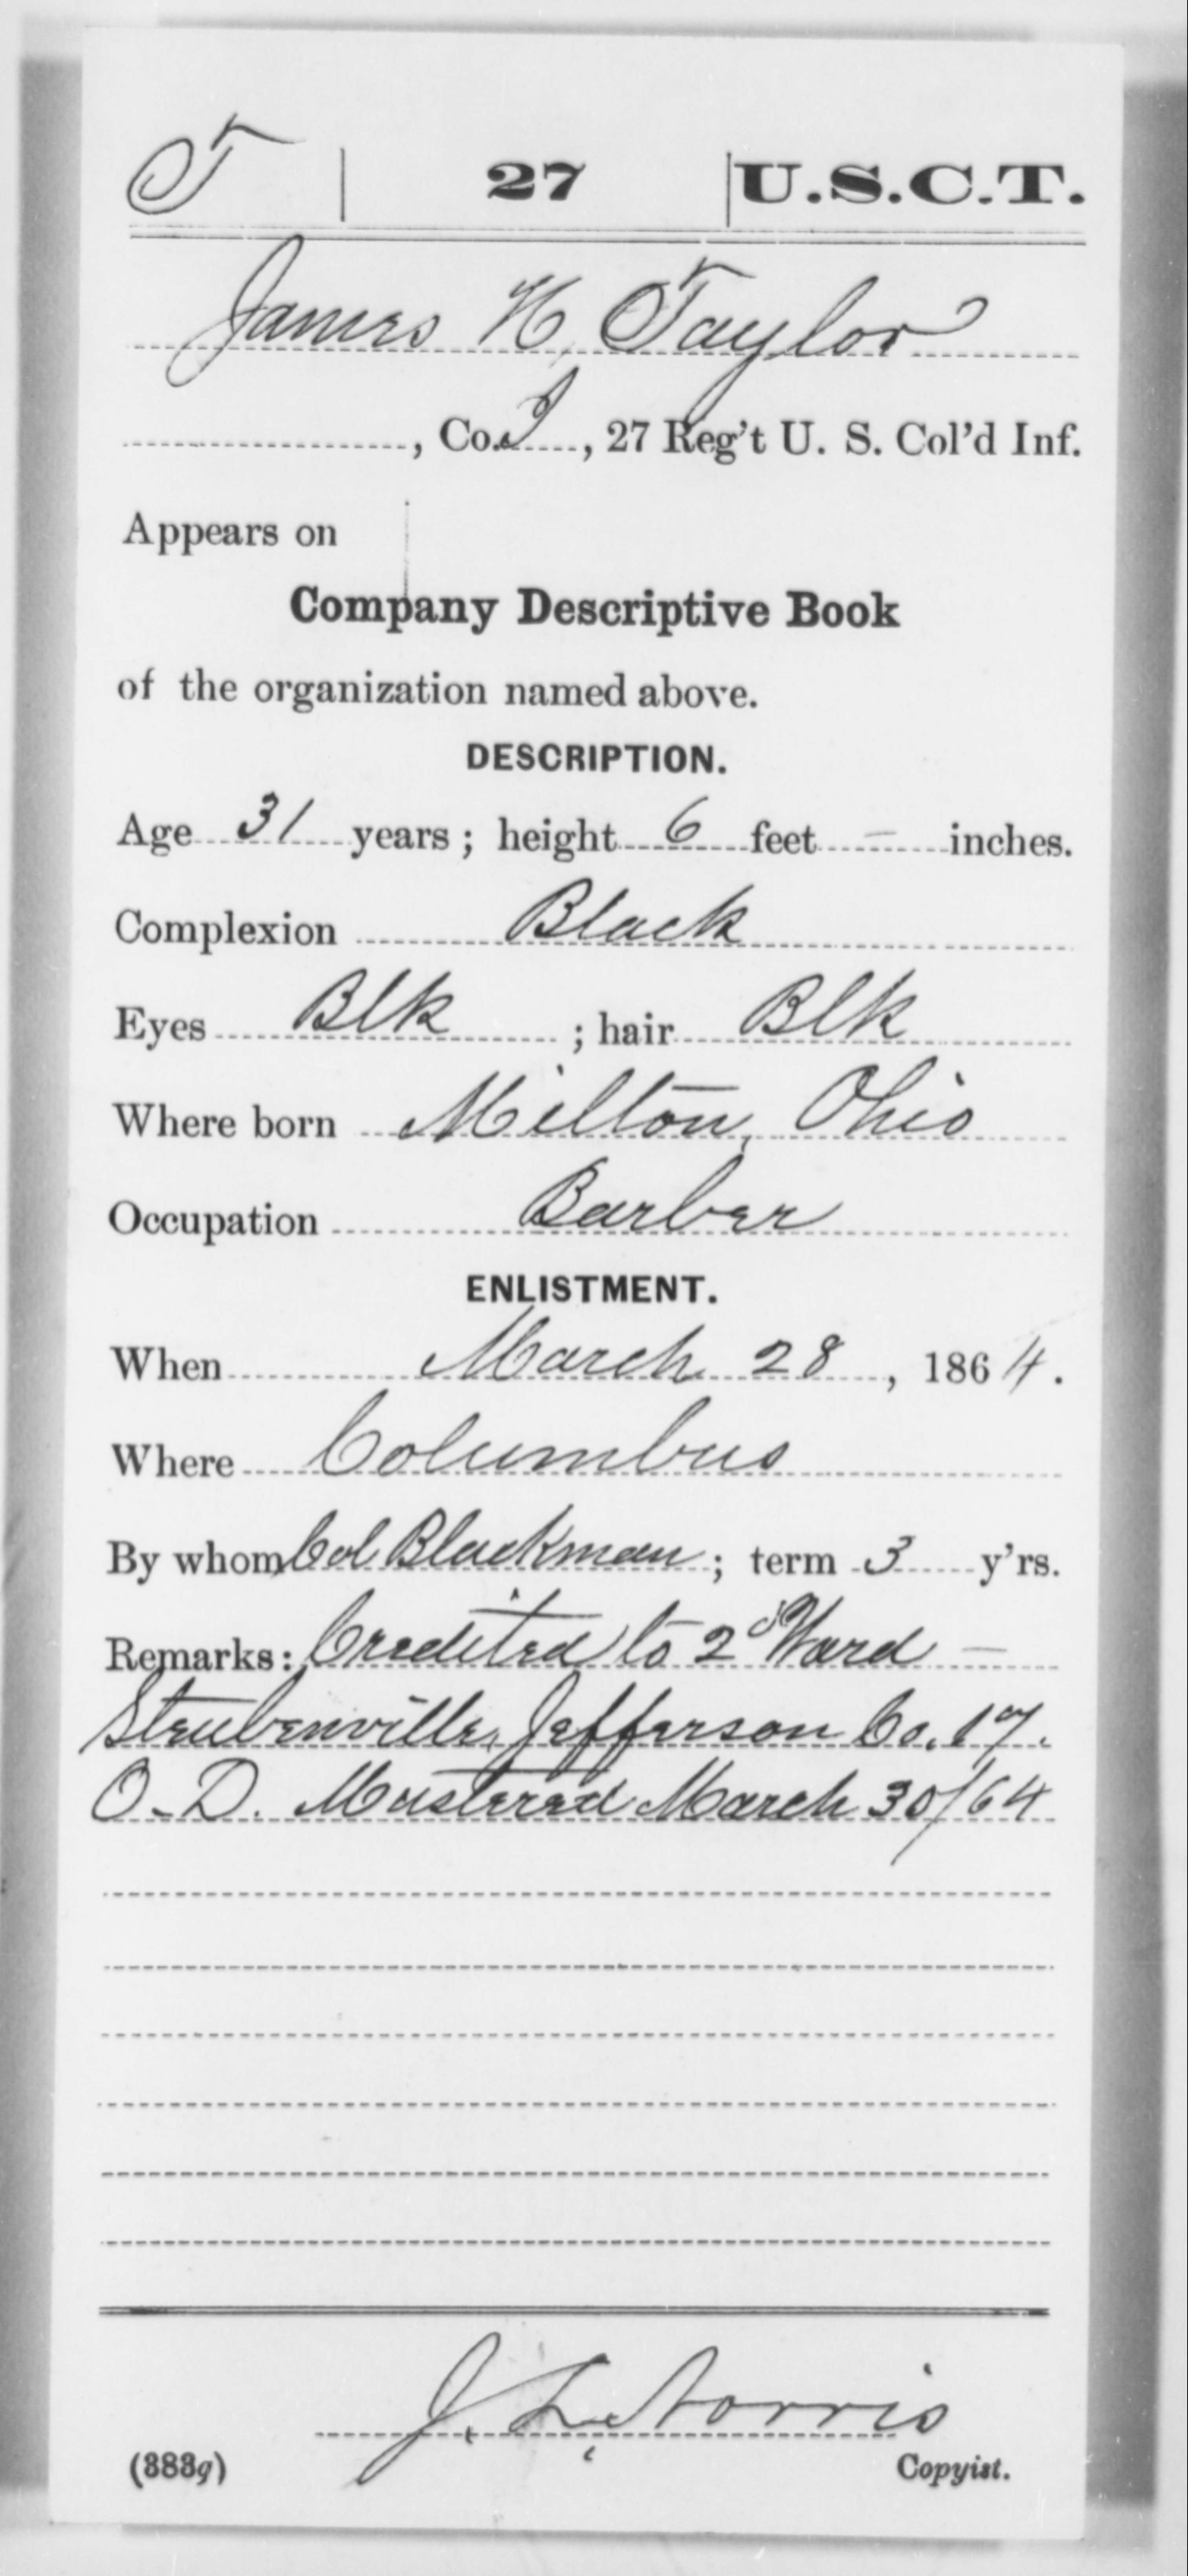 T | 27 | U.S.C.T.
James H. Taylor
, Co. I, 27 Reg't U. S. Col'd Inf.
Appears on
Company Descriptive Book
of the organization named above.
DESCRIPTION.
Age 31 years; height 6 feet – inches.
Complexion Black
Eyes Blk ; hair Blk
Where born Milton, Ohio
Occupation Barber
ENLISTMENT.
When March 28, 1864.
Where Columbus
By whom Col Blackman; term 3 y'rs.
Remarks: Credited to 2d Ward –
Steubenville, Jefferson Co. 17.
O-D. Mustered March 30/64
J. L. Norris
(383g) Copyist.